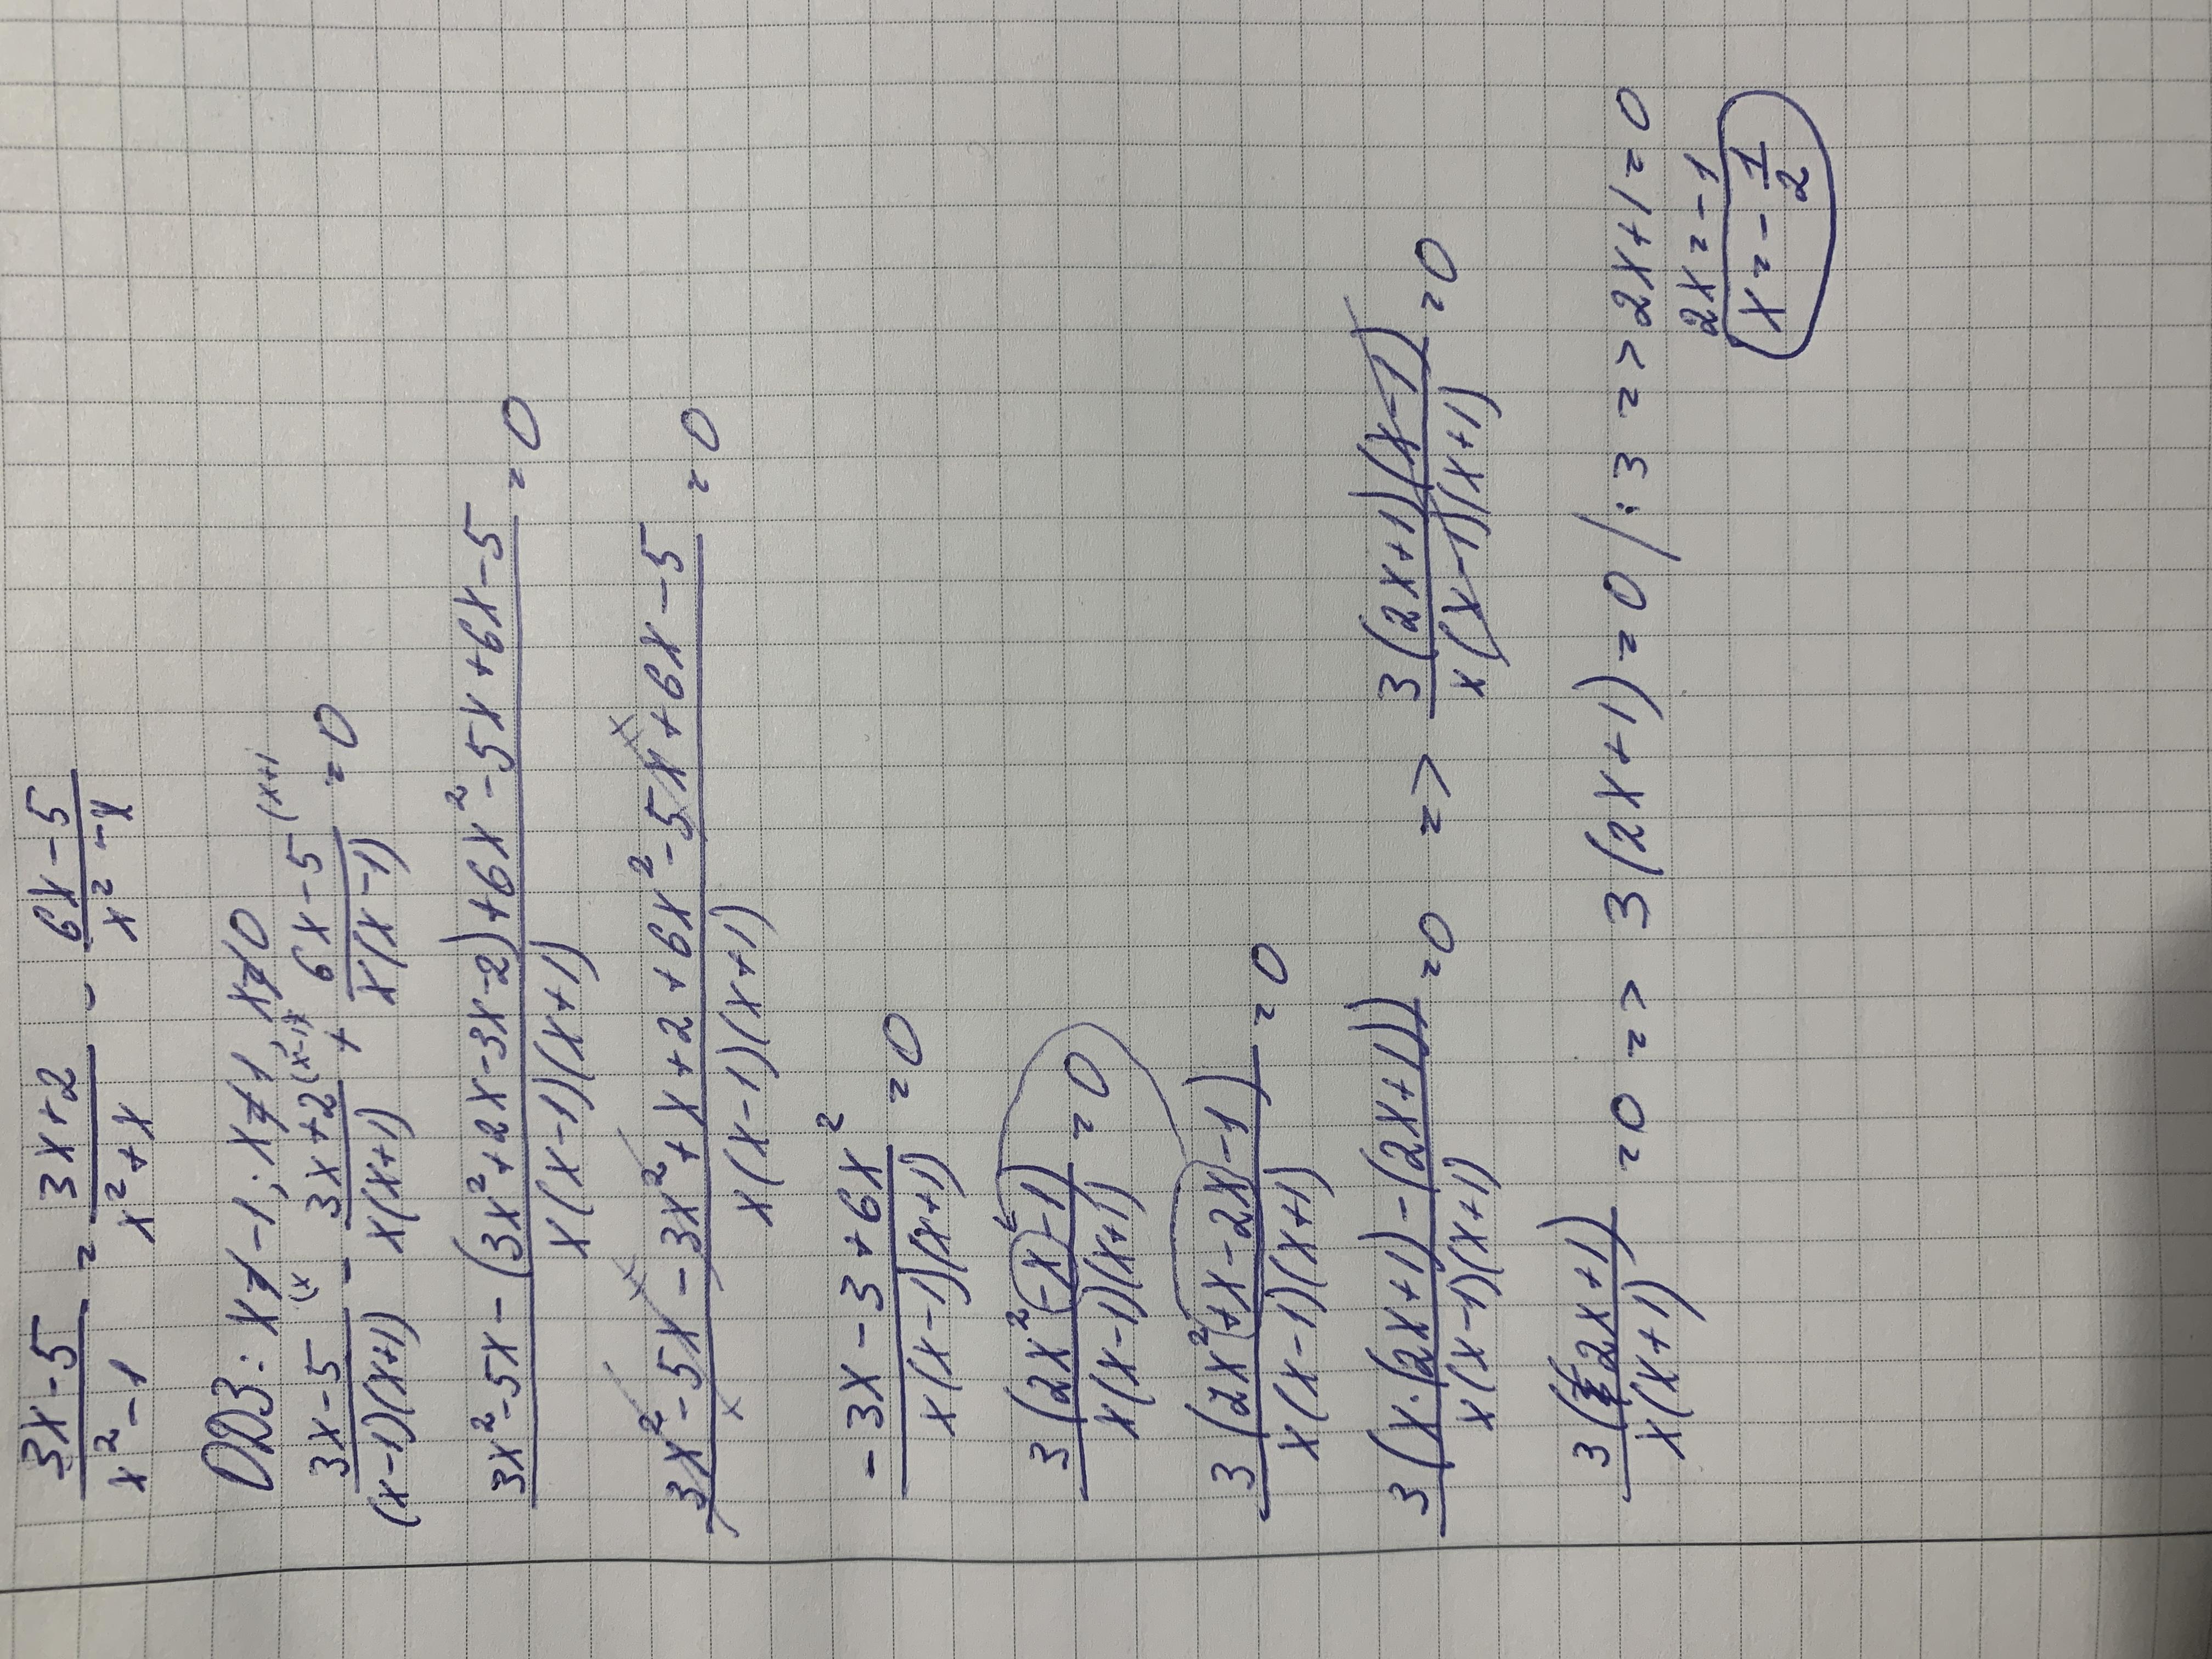 (3x-5)/(x²-1) = (3x+2)/(x²+x) - (6x-5)/(x²-x)
ОДЗ: x≠-1; x≠1; x≠0
(3x-5)/((x-1)(x+1)) (x - (3x+2)/(x(x+1)) (x-1) + (6x-5)/(x(x-1)) (x+1 = 0
(3x²-5x-(3x²+2x-3x-2)+6x²-5x+6x-5)/(x(x-1)(x+1)) = 0
(3x²-5x-3x²+x+2+6x²-5x+6x-5)/(x(x-1)(x+1)) = 0
(-3x-3+6x²)/(x(x-1)(x+1)) = 0
3(2x²-x-1)/(x(x-1)(x+1)) = 0
3(2x²+x-2x-1)/(x(x-1)(x+1)) = 0
3(x·(2x+1)-(2x+1))/(x(x-1)(x+1)) = 0 => 3(2x+1)(x-1)/(x(x-1)(x+1)) = 0
3(2x+1)/(x(x+1)) = 0 => 3(2x+1)=0 /:3 => 2x+1=0
2x=-1
x=-1/2